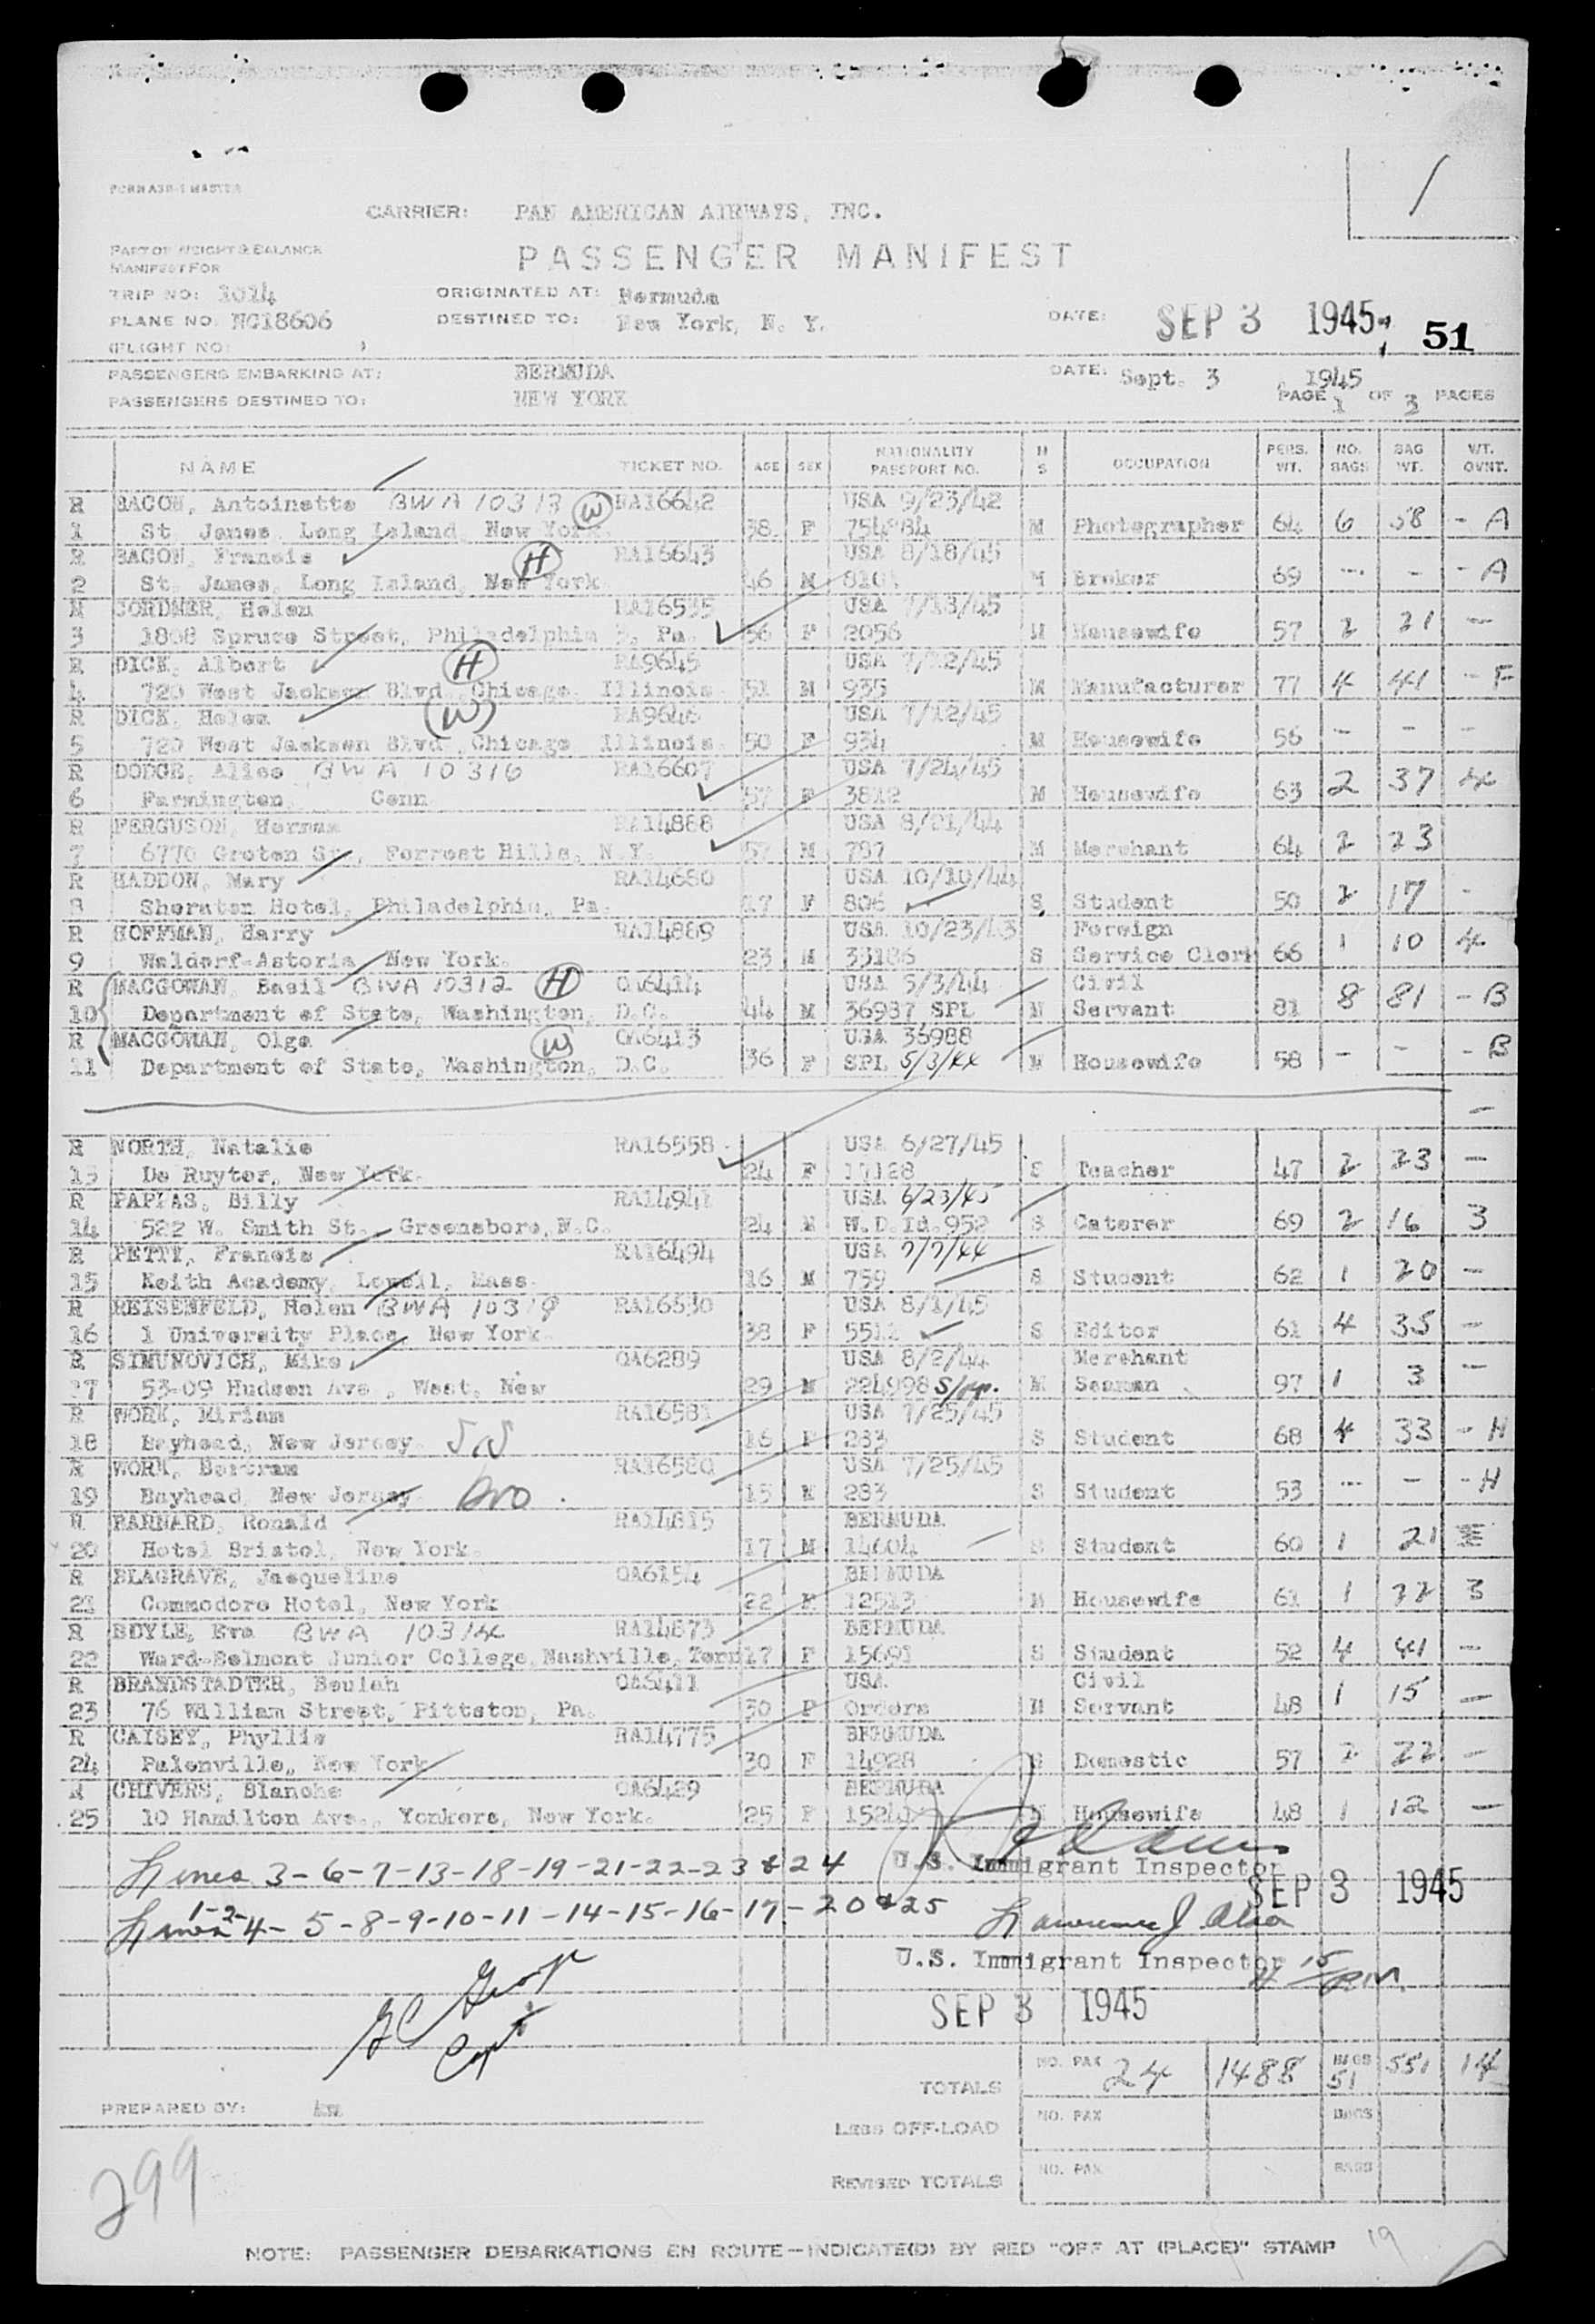 FORM A38-1 MASTER
1
CARRIER: PAN AMERICAN AIRWAYS, INC.
PART OF WEIGHT & BALANCE
MANIFEST FOR
PASSENGER MANIFEST
TRIP NO: 1014 ORIGINATED AT: Bermuda
PLANE NO. NC18606 DESTINED TO: New York, N. Y. DATE: SEP 3 1945 51
(FLIGHT NO: )
PASSENGERS EMBARKING AT: BERMUDA DATE: Sept. 3, 1945
PASSENGERS DESTINED TO: NEW YORK PAGE 1 OF 3 PAGES
NAME TICKET NO. AGE SEX NATIONALITY PASSPORT NO. M S OCCUPATION PERS. WT. NO. BAGS BAG WT. WT. OVNT.
R BACON, Antoinette BWA 10313 W RA16642 USA 9/23/42
1 St James, Long Island, New York. 38 F 754984 M Photographer 64 6 58 - A
R BACON, Francis H RA16643 USA 8/18/45
2 St James, Long Island, New York 46 M M Broker 69 - - - A
N CORDNER, Helen RA16535 USA 7/18/45
3 1808 Spruce Street, Philadelphia 3, Pa. 56 F 2056 M Housewife 57 2 21 -
R DICK, Albert H RA9645 USA 7/12/45
4 720 West Jackson Blvd, Chicago, Illinois 51 M 935 M Manufacturer 77 4 41 - F
R DICK, Helen W RA9646 USA 7/12/45
5 720 West Jackson Blvd, Chicago Illinois 50 F 934 M Housewife 56 - - -
R DODGE, Alice BWA 10316 RA16607 USA 7/24/45
6 Farmington, Conn 57 F 3812 M Housewife 63 2 37 4
R FERGUSON, Herman RA14888 USA 8/21/44
7 6770 Groton St., Forrest Hills, N.Y. 57 M 787 M Merchant 64 2 23
R HADDON, Mary RA14680 USA 10/10/44
8 Sheraton Hotel, Philadelphia, Pa. 17 F 806 S Student 50 2 17 -
R HOFFMAN, Harry RA14889 USA 10/23/43 Foreign
9 Waldorf-Astoria New York. 23 M 35186 S Service Clerk 66 1 10 4
R MACGOWAN, Basil BWA 10312 H OA6414 USA 5/3/44 Civil
10 Department of State, Washington, D.C. 44 M 36987 SPL M Servant 81 8 81 - B
R MACGOWAN, Olga W OA6413 USA 36988
11 Department of State, Washington, D.C. 36 F SPL 5/3/44 M Housewife 58 - - - B
-
R NORTH, Natalie RA16558 USA 6/27/45
13 De Ruyter, New York. 24 F 17128 S Teacher 47 2 23 -
R PAPPAS, Billy RA14941 USA 6/23/45
14 522 W. Smith St., Greensboro, N.C. 24 M W.D.Id.952 S Caterer 69 2 16 3
R PETTY, Francis RA16494 USA 7/7/44
15 Keith Academy, Lowell, Mass. 16 M 759 S Student 62 1 20 -
R REISENFELD, Helen BWA 10318 RA16530 USA 8/1/45
16 1 University Place, New York. 38 F 5511 S Editor 61 4 35 -
R SIMUNOVICH, Mike OA6289 USA 8/2/44 Merchant
17 53-09 Hudson Ave., West, New 29 M 224998 M Seaman 97 1 3 -
R WORK, Miriam RA16581 USA 7/25/45
18 Bayhead, New Jersey. Sis 16 F 283 S Student 68 4 33 - H
R WORK, Bertram RA16580 USA 7/25/45
19 Bayhead New Jersey bro. 15 M 283 S Student 53 - - - H
N BARNARD, Ronald RA14815 BERMUDA
20 Hotel Bristol, New York. 17 M 14604 S Student 60 1 21
R BLAGRAVE, Jacqueline OA6154 BERMUDA
21 Commodore Hotel, New York 22 F 12513 M Housewife 61 1 22 3
R BOYLE, Eva BWA 10314 RA14873 BERMUDA
22 Ward-Belmont Junior College, Nashville, Tenn 17 F 15691 S Student 52 4 41 -
R BRANDSTADTER, Beulah OA6411 USA Civil
23 76 William Street, Pittston, Pa. 30 F Orders M Servant 48 1 15 -
R CAISEY, Phyllis RA14775 BERMUDA
24 Palenville, New York 30 F 14928 S Domestic 57 2 22 -
R CHIVERS, Blanche OA6429 BERMUDA
25 10 Hamilton Ave., Yonkers, New York. 25 F M Housewife 48 1 12 -
Lines 3-6-7-13-18-19-21-22-23 & 24 U.S. Immigrant Inspector
SEP 3 1945
Lines 1-2-4-5-8-9-10-11-14-15-16-17-20 & 25 Lawrence J.
U.S. Immigrant Inspector
4 15 PM
SEP 3 1945
Capt
TOTALS NO. PAX 24 1488 BAGS 51 551 14
PREPARED BY:
LESS OFF-LOAD NO. PAX BAGS
REVISED TOTALS NO. PAX BAGS
299
NOTE: PASSENGER DEBARKATIONS EN ROUTE—INDICATE(D) BY RED "OFF AT (PLACE)" STAMP 19